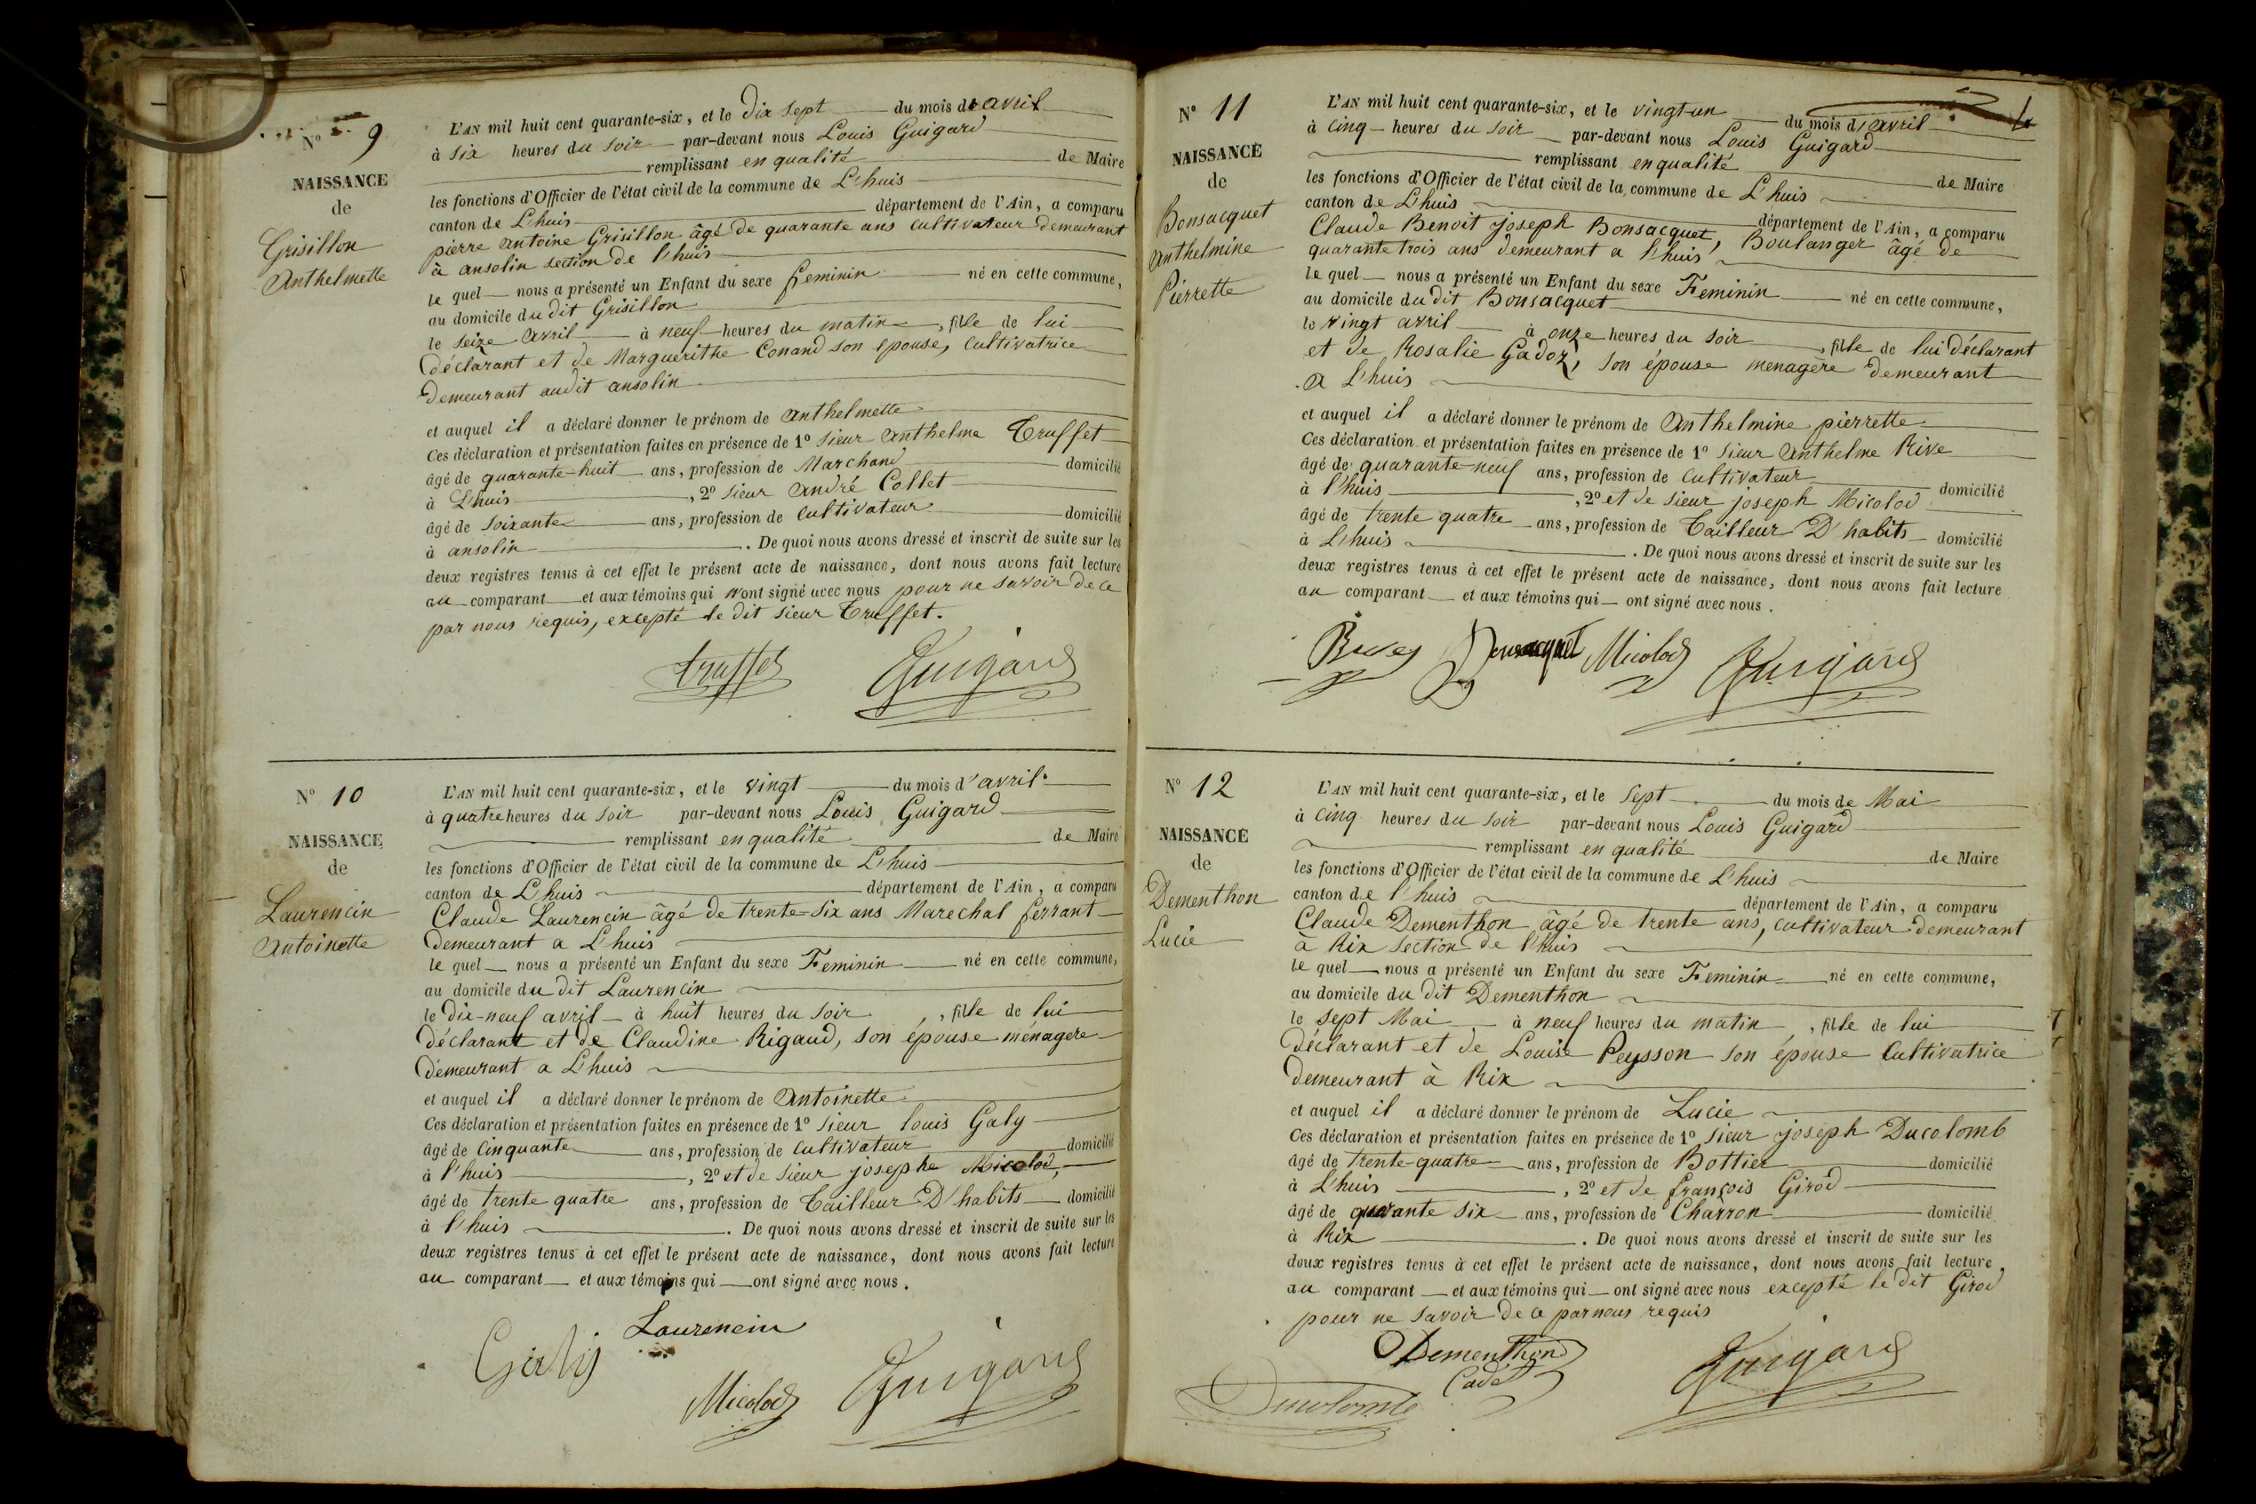 N° 9
NAISSANCE
de
Grisillon
Anthelmette
L'AN mil huit cent quarante-six, et le dix sept du mois d'avril
à six heures du soir par-devant nous Louis Guigard
remplissant en qualité de Maire
les fonctions d'Officier de l'état civil de la commune de L'huis
canton de L'huis département de l'Ain, a comparu
pierre antoine Grisillon âgé de quarante ans cultivateur demeurant
à ansolin section de l'huis
le quel nous a présenté un Enfant du sexe feminin né en cette commune,
au domicile du dit Grisillon
le seize avril à neuf heures du matin, fille de lui
déclarant et de Marguerithe Conand son épouse, cultivatrice
demeurant audit ansolin
et auquel il a déclaré donner le prénom de anthelmette
Ces déclaration et présentation faites en présence de 1° sieur anthelme Truffet
âgé de quarante-huit ans, profession de Marchand domicilié
à L'huis, 2° sieur andré Collet
âgé de soixante ans, profession de cultivateur domicilié
à ansolin. De quoi nous avons dressé et inscrit de suite sur les
deux registres tenus à cet effet le présent acte de naissance, dont nous avons fait lecture
au comparant et aux témoins qui n'ont signé avec nous pour ne savoir de ce
par nous requis, excepté le dit sieur Truffet.
truffet Guigard
N° 10
NAISSANCE
de
Laurencin
Antoinette
L'AN mil huit cent quarante-six, et le vingt du mois d'avril
à quatre heures du soir par-devant nous Louis Guigard
remplissant en qualité de Maire
les fonctions d'Officier de l'état civil de la commune de L'huis
canton de L'huis département de l'Ain, a comparu
Claude Laurencin âgé de trente-six ans Marechal ferrant
demeurant a L'huis
le quel nous a présenté un Enfant du sexe Feminin né en cette commune,
au domicile du dit Laurencin
le dix-neuf avril à huit heures du soir, fille de lui
déclarant et de Claudine Rigaud, son épouse ménagere
demeurant a L'huis
et auquel il a déclaré donner le prénom de antoinette
Ces déclaration et présentation faites en présence de 1° sieur louis Galy
âgé de cinquante ans, profession de cultivateur domicilié
à l'huis, 2° et de sieur josephe Micolod,
âgé de trente quatre ans, profession de Tailleur D'habits domicilié
à l'huis. De quoi nous avons dressé et inscrit de suite sur les
deux registres tenus à cet effet le présent acte de naissance, dont nous avons fait lecture
au comparant et aux témoins qui ont signé avec nous.
Laurencin
Micolod Guigard
N° 11
NAISSANCE
de
Bonsacquet
anthelmine
Pierrette
L'AN mil huit cent quarante-six, et le vingt-un du mois d'avril
à cinq heures du soir par-devant nous Louis Guigard
remplissant en qualité de Maire
les fonctions d'Officier de l'état civil de la commune de L'huis
canton de L'huis département de l'Ain, a comparu
Claude Benoit joseph Bonsacquet, Boulanger âgé de
quarante trois ans demeurant a l'huis
le quel nous a présenté un Enfant du sexe Feminin né en cette commune,
au domicile du dit Bonsacquet
le vingt avril à onze heures du soir, fille de lui déclarant
et de Rosalie Gadoz, son épouse menagère demeurant
a L'huis
et auquel il a déclaré donner le prénom de Anthelmine pierrette
Ces déclaration et présentation faites en présence de 1° sieur anthelme Rive
âgé de quarante-neuf ans, profession de cultivateur domicilié
à l'huis, 2° et de sieur joseph Micolod
âgé de trente quatre ans, profession de Tailleur D'habits domicilié
à L'huis. De quoi nous avons dressé et inscrit de suite sur les
deux registres tenus à cet effet le présent acte de naissance, dont nous avons fait lecture
au comparant et aux témoins qui ont signé avec nous.
Bonsacquet Micolod Guigard
N° 12
NAISSANCE
de
Dementhon
Lucie
L'AN mil huit cent quarante-six, et le sept du mois de Mai
à cinq heures du soir par-devant nous Louis Guigard
remplissant en qualité de Maire
les fonctions d'Officier de l'état civil de la commune de L'huis
canton de l'huis département de l'Ain, a comparu
Claude Dementhon âgé de trente ans, cultivateur demeurant
à Rix section de l'huis
le quel nous a présenté un Enfant du sexe Feminin né en cette commune,
au domicile du dit Dementhon
le sept Mai à neuf heures du matin, fille de lui
déclarant et de Louise Peysson son épouse cultivatrice
demeurant à Rix
et auquel il a déclaré donner le prénom de Lucie
Ces déclaration et présentation faites en présence de 1° sieur joseph Ducolomb
âgé de trente-quatre ans, profession de Bottier domicilié
à L'huis, 2° et de françois Girod
âgé de quarante six ans, profession de Charron domicilié
à Rix. De quoi nous avons dressé et inscrit de suite sur les
deux registres tenus à cet effet le présent acte de naissance, dont nous avons fait lecture
au comparant et aux témoins qui ont signé avec nous excepté le dit Girod
pour ne savoir de ce par nous requis
Dementhon
Cadet
Ducolomb Guigard